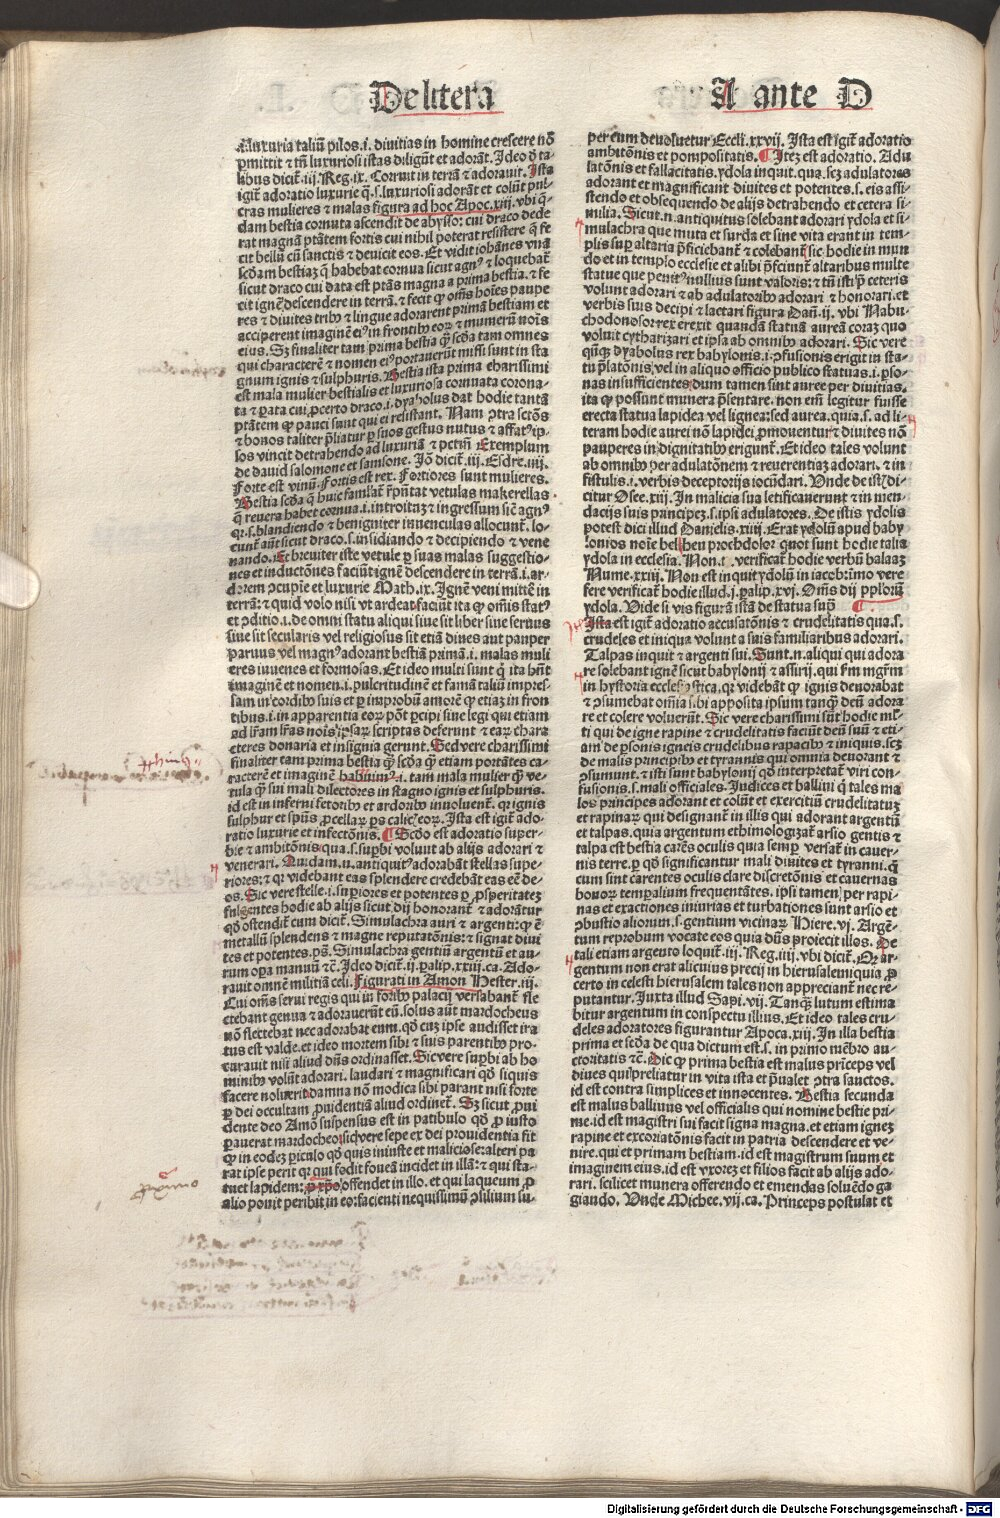 De litera
A ante D
Luxuria taliũ pilos .i. diuitias in homine crescere nõ
permittit ⁊ tñ luxuriosi istas diligũt ⁊ adorãt. Ideo ð ta
libus dicit̃ .iij. Reg. ix. Corruit in terrã ⁊ adorauit. Ista
igit̃ adoratio luxurie q̃ .s. luxuriosi adorãt et colũt pul-
cras mulieres ⁊ malas figura ad hoc Apoc. xiij. vbi q̃-
dam bestia cornuta ascendit de abysso: cui draco dede
rat magnã ptãtem fortis cui nihil poterat resistere q̃ fe
cit bellũ cũ sanctis ⁊ deuicit eos. Et vidit iohãnes vnã
scðam bestiaz q̃ habebat cornua sicut agnꝰ ⁊ loquebat̃
sicut draco cui data est ptãs magna a prima bestia. ⁊ fe
cit ignẽ descendere in terrã. ⁊ fecit ꝙ om̃s hoĩes paupe
res ⁊ diuites tribꝰ ⁊ lingue adorarent primã bestiam et
acciperent imaginẽ eiꝰ in frontibꝰ eorꝝ ⁊ numerũ nõis
eius. Sz finaliter tam prima bestia q̃ʒ scða tam omnes
qui characterẽ ⁊ nomen eiꝰ portauerũt missi sunt in sta
gnum ignis ⁊ sulphuris. Bestia ista prima charissimi
est mala mulier bestialis et luxuriosa cornuata corona-
ta ⁊ parata cui ꝓcerto draco .i. dyabolus dat hodie tantã
ptãtem ꝙ pauci sunt qui ei resistant. Nam ꝯtra sctõs
⁊ bonos taliter p̃liatur ꝑ suos gestus nutus ⁊ affatꝰ ip-
sos vincit detrahendo ad luxuriã ⁊ pctm̃. Exemplum
de dauid salomone et samsone. Iõ dicit̃ .iij. Esdre. iiij.
Forte est vinũ. Fortis est rex. Fortiores sunt mulieres.
Bestia scða q̃ huic famlat̃ rp̃ntat vetulas makerellas
q̃ reuera habet cornua .i. introitũ ⁊ ingressum sic̃ agnꝰ
qꝛ .s. blandiendo ⁊ benigniter iuuenculas allocunt̃. lo-
cunt̃ aũt sicut draco .s. insidiando ⁊ decipiendo ⁊ vene
nando. Et breuiter iste vetule ꝑ suas malas suggestio-
nes et inductõnes faciũt ignẽ descendere in terrã .i. ar-
dorem ꝯcupie et luxurie Math. ix. Ignẽ veni mittẽ in
terrã: ⁊ quid volo nisi vt ardeat. faciũt ita ꝙ om̃is statꝰ
et ꝯditio .i. de omni statu aliqui siue sit liber siue seruus
siue sit secularis vel religiosus sit etiã diues aut pauper
paruus vel magnꝰ adorant bestiã primã .i. malas muli
eres iuuenes et formosas. Et ideo multi sunt q̃ ita hñt
imaginẽ et nomen .i. pulcritudinẽ et famã taliũ impres-
sam in cordibꝰ suis et ꝑ improbũ amorẽ ꝙ etiaʒ in fron
tibus .i. in apparentia eorꝝ põt ꝑcipi sine legi qui etiam
ad lr̃am lr̃as nõis ipsaꝝ scriptas deferunt ⁊ eaꝝ chara
cteres donaria et insignia gerunt. Sed vere charissimi
finaliter tam prima bestia q̃ʒ scða q̃ʒ etiam portãtes ca-
racterẽ et imaginẽ habuimꝰ .i. tam mala mulier q̃ʒ ve-
tula q̃ʒ sui mali dilectores in stagno ignis et sulphuris.
id est in inferni fetoribꝰ et ardoribꝰ inuoluent̃. qꝛ ignis
sulphur et spũs ꝓcellaꝝ ps calic̃ eoꝝ. Ista est igit̃ ado-
ratio luxurie et infectõnis. ¶ Scðo est adoratio super-
bie ⁊ ambitõnis qua .s. supbi voluut ab alijs adorari ⁊
venerari. Quidam .n. antiquitꝰ adorabãt stellas supe-
riores: ⁊ qꝛ videbant eas splendere credebãt eas eẽ de-
os. Sic vere stelle .i. supiores et potentes ꝑ ꝓsperitateʒ
fulgentes hodie ab alijs sicut dij honorant̃ ⁊ adorãtur
qð ostendit̃ cum dicit̃. Simulachra auri ⁊ argenti: ꝙ ẽ
metallũ splendens ⁊ magne reputatõnis: ⁊ signat diui
tes et potentes. ps̃. Simulachra gentiũ argentũ et au-
rum opa manuũ ⁊c̃. Ideo dicit̃ .ij. palip. xxiij. ca. Ado-
rauit omnẽ militiã celi. Figurati in Amon Hester. iij.
Cui om̃s serui regis qui in foribꝰ palacij versabant̃ fle
ctebant genua ⁊ adorauerũt eũ. solus aũt mardocheus
nõ flectebat nec adorabat eum. qð cuʒ ipse audisset ira
tus est valde. et ideo mortem sibi ⁊ suis parentibꝰ pro-
curauit nisi aliud dñs ordinasset. Sic vere supbi ab ho
minibꝰ volũt adorari. laudari ⁊ magnificari qð siquis
facere noluerit damna nõ modica sibi parant nisi forte
ꝑ dei occultam ꝓuidentiã aliud ordinet̃. Sz sicut ꝓui
dente deo Amõ suspensus est in patibulo qð ꝓ iusto
ꝑauerat mardocheo. sic vere sepe ex dei prouidentia fit
ꝙ in eodeʒ piculo qð quis iniuste et maliciose alteri pa
rat ipse perit qꝛ qui fodit foueã incidet in illã: ⁊ qui sta-
tuet lapidem: ꝓximo offendet in illo. et qui laqueum ꝓ
alio ponit peribit in eo: facienti nequissimũ ꝯsilium su-
per eum deuoluetur Eccli. xxvij. Ista est igit̃ adoratio
ambitõnis et pompositatis. ¶ Iteʒ est adoratio. Adu
latõnis et fallacitatis. ydola inquit. qua. scʒ adulatores
adorant et magnificant diuites et potentes .s. eis assi-
stendo et obsequendo de alijs detrahendo et cetera si-
milia. Sicut .n. antiquitus solebant adorari ydola et si-
mulachra que muta et surda et sine vita erant in tem-
plis sup altaria p̃ficiebant̃ ⁊ colebant̃ sic hodie in mun
do et in templo ecclesie et alibi p̃ficiunt̃ altaribus multe
statue que penitꝰ nullius sunt valoris: ⁊ tñ isti p̃ ceteris
volunt adorari ⁊ ab adulatoribꝰ adorari ⁊ honorari. et
verbis suis decipi ⁊ lactari figura Dañ. ij. vbi Nabu
chodonosor rex erexit quandã statuã aureã coraʒ quo
voluit cytharizari et ipsa ab omnibꝰ adorari. Sic vere
qñqʒ dyabolus rex babylonis .i. ꝯfusionis erigit in sta-
tu p̃latõnis: vel in aliquo officio publico statuas .i. pso-
nas insufficientes: dum tamen sint auree per diuitias.
ita ꝙ possunt munera p̃sentare. non em̃ legitur fuisse
erecta statua lapidea vel lignea: sed aurea. quia .s. ad li-
teram hodie aurei nõ lapidei ꝓmouentur ⁊ diuites nõ
pauperes in dignitatibꝰ erigunt̃. Et ideo tales volunt
ab omnibꝰ per adulatõnem ⁊ reuerentiaʒ adorari. ⁊ in
fistulis .i. verbis deceptorijs iocũdari. Vnde de istis di-
citur Osee. xiij. In malicia sua letificauerunt ⁊ in men-
dacijs suis principeʒ .s. ipsi adulatores. De istis ydolis
potest dici illud Danielis. xiiij. Erat ydolũ apud baby
lonios noĩe bel. heu prochdolor quot sunt hodie talia
ydola in ecclesia. Non .i. verificat̃ hodie verbũ balaaʒ
Nume. xxiij. Non est inquit ydolũ in iacob: imo vere
fere verificat̃ hodie illud .j. palip. xvj. Om̃s dij pploꝝ
ydola. Vide si vis figurã istã de statua sup̃ ¶.
Ista est igit̃ adoratio accusatõnis ⁊ crudelitatis qua .s.
crudeles et iniqua volunt a suis familiaribus adorari.
Talpas inquit ⁊ argenti sui. Sunt .n. aliqui qui adora
re solebant ignẽ sicut babylonij ⁊ assirij. qui fm̃ mgr̃m
in hystoria ecclesiastica. qꝛ videbãt ꝙ ignis deuorabat
⁊ ꝯsumebat om̃ia sibi apposita ipsum tanqʒ deũ adora
re et colere voluerũt. Sic vere charissimi sũt hodie ml̃-
ti qui de igne rapine ⁊ crudelitatis faciũt deũ suũ ⁊ eti-
am de psonis igneis crudelibus rapacibꝰ ⁊ iniquis. scʒ
de malis principibꝰ et tyrannis qui omnia deuorant ⁊
ꝯsumunt. ⁊ isti sunt babylonij qð interpretat̃ viri con-
fusionis .s. mali officiales. Iudices et balliui q̃ tales ma
los principes adorant et colũt et exercitiũ crudelitatuʒ
et rapinaꝝ qui designant̃ in illis qui adorant argentũ
et talpas. quia argentum ethimologizat̃ arsio gentis ⁊
talpa est bestia carẽs oculis quia semp versat̃ in cauer-
nis terre. ꝑ qð significantur mali diuites et tyranni. q̃
cum sint carentes oculis clare discretõnis et cauernas
bonoꝝ tempalium frequentãtes. ipsi tamen per rapi-
nas et exactiones iniurias et turbationes sunt arsio et
ꝯbustio aliorum .s. gentium vicinaꝝ Hiere. vj. Argẽ-
tum reprobum vocate eos quia dñs proiecit illos. De
tali etiam argento loquit̃ .iij. Reg. iiij. vbi dicit̃. Qꝛ ar-
gentum non erat alicuius precij in hierusalem quia ꝓ
certo in celesti hierusalem tales non appreciant̃ nec re-
putantur. Iuxta illud Sapi. vij. Tanqʒ lutum estima
bitur argentum in conspectu illius. Et ideo tales cru-
deles adoratores figurantur Apoca. xiij. In illa bestia
prima et scða de qua dictum est .s. in primo mẽbro au-
ctoritatis ⁊c̃. Dic ꝙ prima bestia est malus princeps vel
diues qui preliatur in vita ista et p̃ualet ꝯtra sanctos.
id est contra simplices et innocentes. Bestia secunda
est malus balliuus vel officialis qui nomine bestie pri-
me. id est magistri sui facit signa magna. et etiam igneʒ
rapine et excoriatõnis facit in patria descendere et ve-
nire. qui et primam bestiam. id est magistrum suum et
imaginem eius. id est vxoreʒ et filios facit ab alijs ado-
rari. scilicet munera offerendo et emendas soluẽdo ga
giando. Vnde Michee. vij. ca. Princeps postulat et
ꝓximo
Digitalisierung gefördert durch die Deutsche Forschungsgemeinschaft - DFG